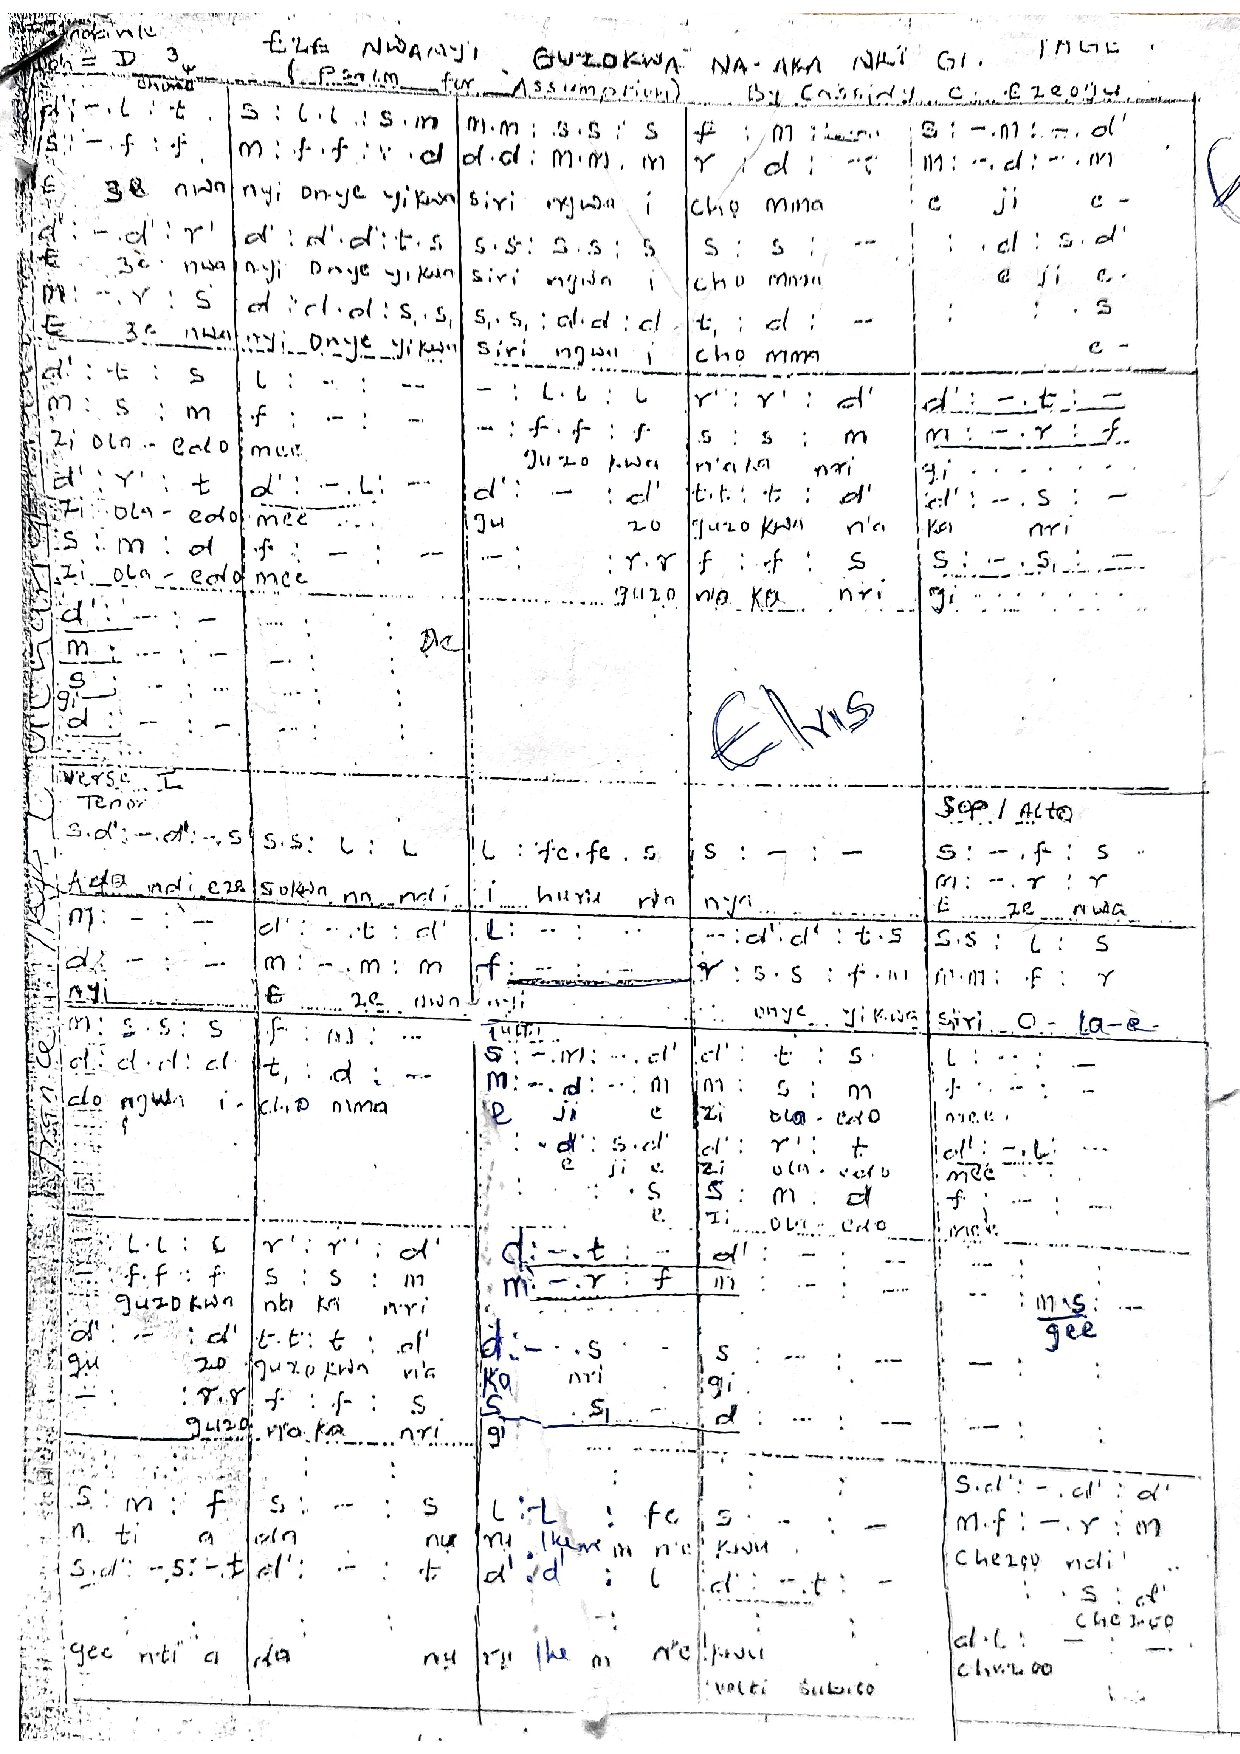 Doh = D 3/4 EZE NWANYI GUZOKWA NA-AKA NRI GI.
(Psalm for Assumption) By Cassidy C. Ezeogu
Chorus
d' : - . l : t | s : l . l : s . m | m . m : s . s : s | f : m : | s : - . m : - . d'
s : - . f : f | m : f . f : r . d | d . d : m . m . m | r : d : - | m : - . d : - . m
E ze nwa nyi onye yikwa siri ngwa i cho mma e ji e -
d' : - . d' : r' | d' : d' . d' : t . s | s . s : s . s : s | s : s : - | : . d : s . d'
E ze nwa nyi onye yikwa siri ngwa i cho mma e ji e -
m : - . r : s | d : d . d : s, . s, | s, . s, : d . d : d | t, : d : - | : : . s
E ze nwa nyi onye yikwa siri ngwa i cho mma e -
d' : t : s | l : - : - | - : l . l : l | r' : r' : d' | d' : - . t : -
m : s : m | f : - : - | - : f . f : f | s : s : m | m : - . r : f
zi ola - edo mee guzo kwa n'aka nri gi
d' : r' : t | d' : - . l : - | d' : - : d' | t . t : t : d' | d' : - . s : -
zi ola - edo mee gu zo guzo kwa n'a ka nri
s : m : d | f : - : - | - : : r . r | f : f : s | s : - . s, : -
zi ola - edo mee guzo n'a ka nri gi
d' : - : - | - : :
m : - : - | - : : DC
s : - : - | - : :
gi
d : - : - | - : :
Elvis
Verse I
Tenor Sop / Alto
s . d' : - . d' : - . s | s . s : l : l | l : fe . fe . s | s : - : - | s : - . f : s
m : - . r : r
Ada ndi eze sokwa na ndi i huru na nya E ze nwa
m : - : - | d' : - . t : d' | l : - : - | - : d' . d' : t . s | s . s : l : s
d : - : - | m : - . m : m | f : - : - | r : s . s : f . m | m . m : f : r
nyi E ze nwa nyi onye yikwa siri o - la - e -
m : s . s : s | f : m : - | s : - . m : - . d' | d' : t : s | l : - : -
Tutti
d : d . d : d | t, : d : - | m : - . d : - . m | m : s : m | f : - : -
do ngwa i - cho mma e ji e zi ola - edo mee
: . d' : s . d' | d' : r' : t | d' : - . l : -
e ji e zi ola - edo mee
: : . s | s : m . d | f : - : -
e zi ola - edo mee
- l . l : l | r' : r' : d' | d : - . t : - | d' : - : - | - : :
- f . f : f | s : s : m | m : - . r : f | m : - : - | - : m . s : -
guzo kwa na ka nri gee
d' : - : d' | t . t : t : d' | d : - . s | s : - : - | - : :
gu zo guzo kwa n'a ka nri gi
- : : r . r | f : f : s | s . s, - | d : - : - | - : :
guzo n'a ka nri gi
s : m : f | s : - : s | l : l : fe | s : - : - | s . d' : - . d' : d'
m . f : - . r : m
n ti a da nu ru Ikem n'e kwu Chezoo ndi
s . d' : - . s : - . t | d' : - : t | d' . d : l | d' : - . t : - | : . s : d'
chezoo
d . l : - : -
gee nti a da nu ru Ike m n'e kwu chezoo
volti subito